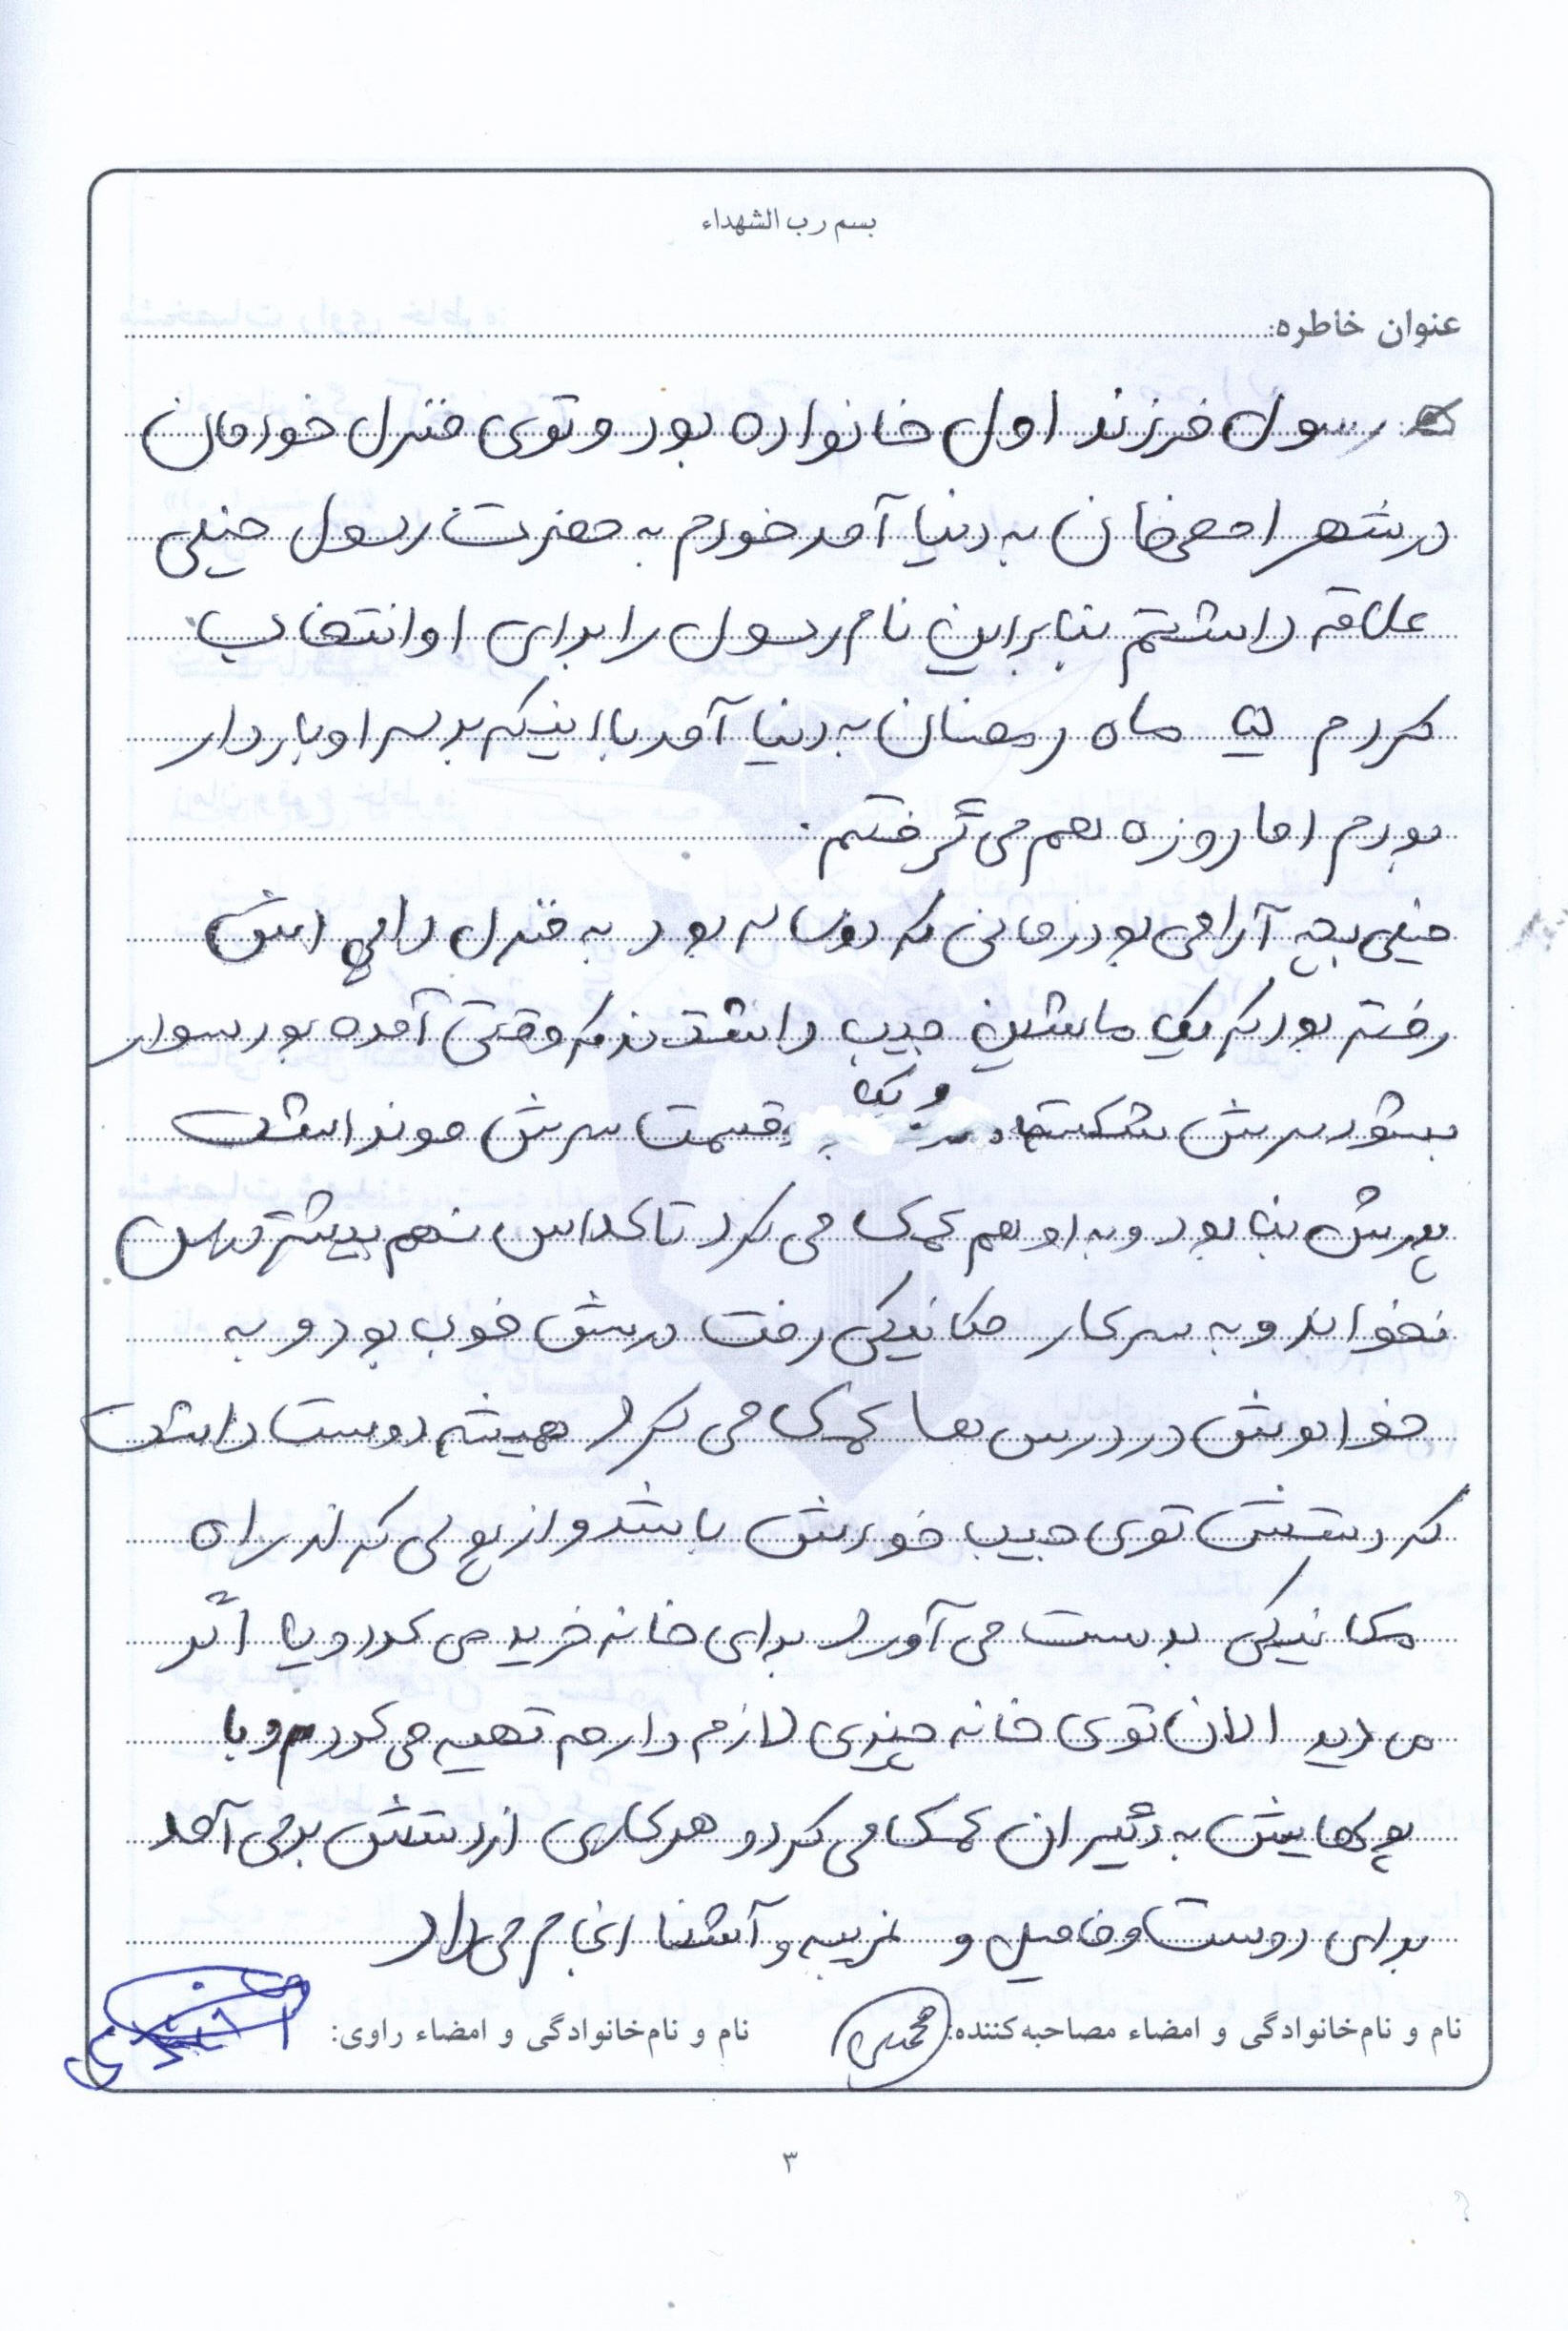 بسم رب الشهداء
عنوان خاطره:
رسول فرزند اول خانواده بود و توی منزل خودمان
در شهر اصفهان به دنیا آمد خودم به حضرت رسول خیلی
علاقه داشتم بنابراین نام رسول را برای او انتخاب
کردم ماه رمضان به دنیا آمد با اینکه بر سر او باردار
بودم اما روزه هم می گرفتم.
خیلی بچه آرامی بود زمانی که دو ساله بود به منزل دایی اش
رفته بود که یک ماشین جیپ داشتند که وقتی آمده بود سوار
بشود سرش شکسته و یک قسمت سرش مو نداشت
پدرش بنا بود و به او هم کمک می کرد تا کلاس نهم بیشتر درس
نخواند و به سر کار مکانیکی رفت درسش خوب بود و به
خواهرش در درس ها کمک می کرد همیشه دوست داشت
که دستش توی جیب خودش باشد و از پولی که از راه
مکانیکی بدست می آورد برای خانه خرید می کرد و یا اگر
می دید الان توی خانه چیزی لازم داریم تهیه می کرد و با
پولهایش به دیگران کمک می کرد و هر کاری از دستش برمی آمد
برای دوست و فامیل و غریبه و آشنا انجام می داد
نام و نام‌خانوادگی و امضاء مصاحبه‌کننده: نام و نام‌خانوادگی و امضاء راوی:
۳